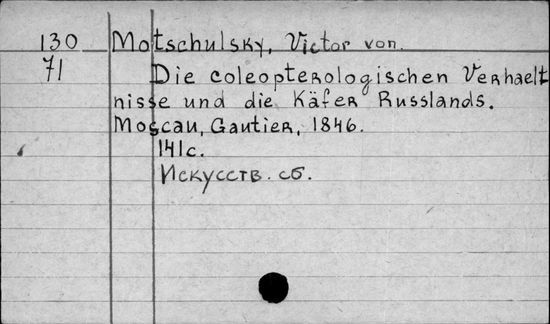 130 Motschulsky, Victor von.
71 Die coleopterologischen Verhaelt
nisse und die Käfer Russlands.
Moscau, Gautier, 1846.
141c.
Искусств. сб.